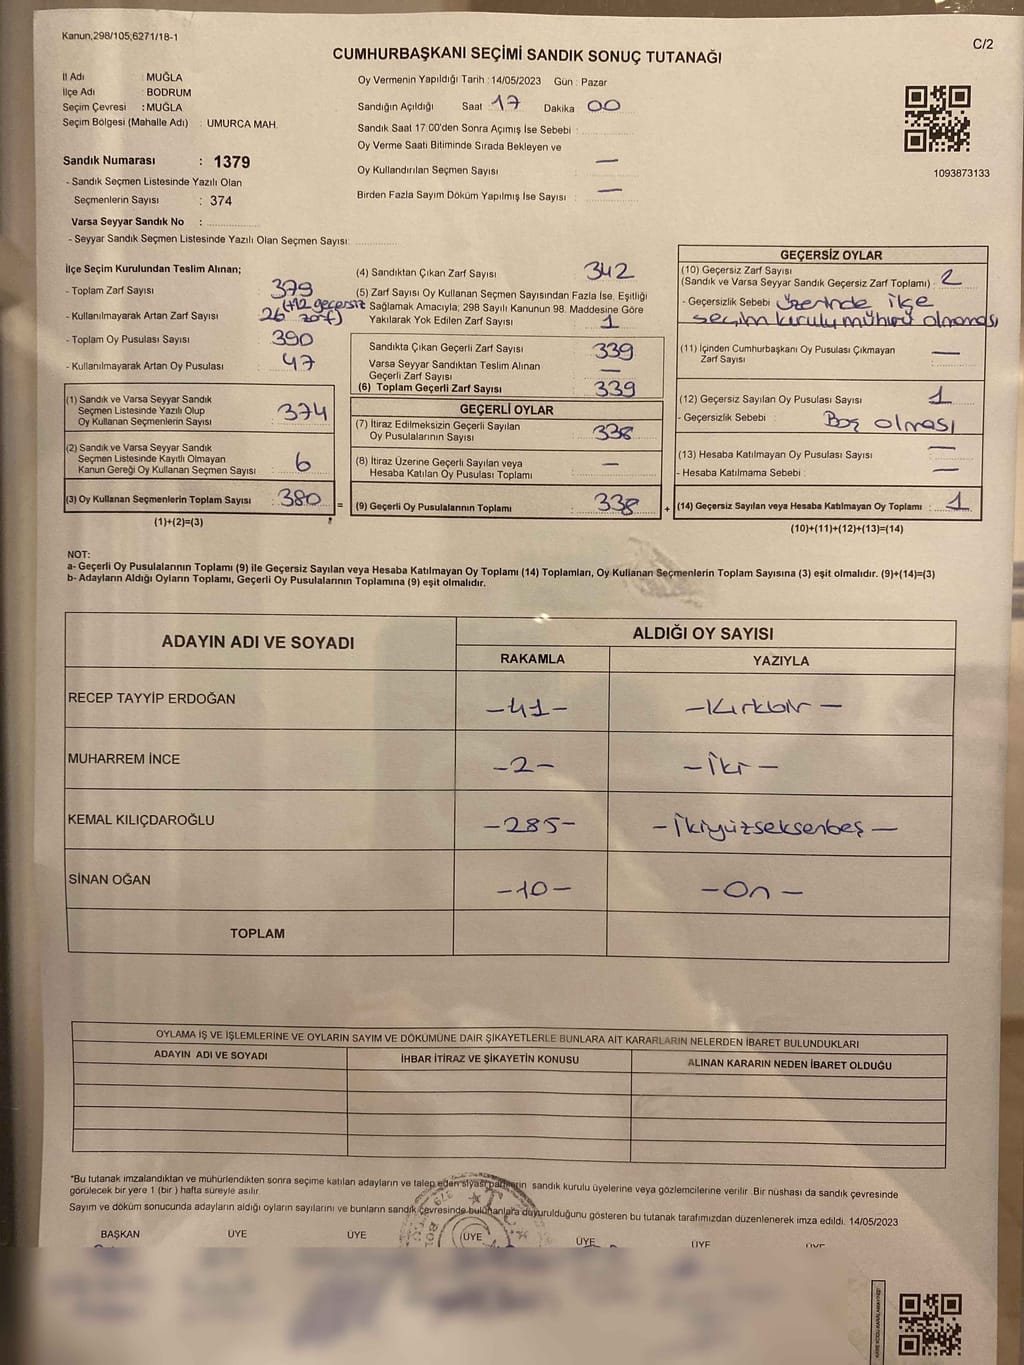 Kanun,298/105,6271/18-1
C/2
CUMHURBAŞKANI SEÇİMİ SANDIK SONUÇ TUTANAĞI
İl Adı : MUĞLA
İlçe Adı : BODRUM
Seçim Çevresi : MUĞLA
Seçim Bölgesi (Mahalle Adı) : UMURCA MAH.
Oy Vermenin Yapıldığı Tarih : 14/05/2023 Gün : Pazar
Sandığın Açıldığı Saat : 17 Dakika 00
Sandık Saat 17:00'den Sonra Açımış İse Sebebi :
Oy Verme Saati Bitiminde Sırada Bekleyen ve
Oy Kullandırılan Seçmen Sayısı : —
Birden Fazla Sayım Döküm Yapılmış İse Sayısı : —
1093873133
Sandık Numarası : 1379
- Sandık Seçmen Listesinde Yazılı Olan
Seçmenlerin Sayısı : 374
Varsa Seyyar Sandık No :
- Seyyar Sandık Seçmen Listesinde Yazılı Olan Seçmen Sayısı:
İlçe Seçim Kurulundan Teslim Alınan;
- Toplam Zarf Sayısı 379
- Kullanılmayarak Artan Zarf Sayısı 26 (+12 geçersiz zarf)
- Toplam Oy Pusulası Sayısı 390
- Kullanılmayarak Artan Oy Pusulası 47
(1) Sandık ve Varsa Seyyar Sandık
Seçmen Listesinde Yazılı Olup
Oy Kullanan Seçmenlerin Sayısı : 374
(2) Sandık ve Varsa Seyyar Sandık
Seçmen Listesinde Kayıtlı Olmayan
Kanun Gereği Oy Kullanan Seçmen Sayısı : 6
(3) Oy Kullanan Seçmenlerin Toplam Sayısı : 380 =
(1)+(2)=(3)
(4) Sandıktan Çıkan Zarf Sayısı 342
(5) Zarf Sayısı Oy Kullanan Seçmen Sayısından Fazla İse, Eşitliği
Sağlamak Amacıyla; 298 Sayılı Kanunun 98. Maddesine Göre
Yakılarak Yok Edilen Zarf Sayısı : 1
Sandıkta Çıkan Geçerli Zarf Sayısı 339
Varsa Seyyar Sandıktan Teslim Alınan
Geçerli Zarf Sayısı —
(6) Toplam Geçerli Zarf Sayısı 339
GEÇERLİ OYLAR
(7) İtiraz Edilmeksizin Geçerli Sayılan
Oy Pusulalarının Sayısı : 338
(8) İtiraz Üzerine Geçerli Sayılan veya
Hesaba Katılan Oy Pusulası Toplamı : —
(9) Geçerli Oy Pusulalarının Toplamı : 338 +
GEÇERSİZ OYLAR
(10) Geçersiz Zarf Sayısı
(Sandık ve Varsa Seyyar Sandık Geçersiz Zarf Toplamı) : 2
- Geçersizlik Sebebi : Üzerinde ilçe
seçim kurulu mührü olmaması
(11) İçinden Cumhurbaşkanı Oy Pusulası Çıkmayan
Zarf Sayısı —
(12) Geçersiz Sayılan Oy Pusulası Sayısı : 1
- Geçersizlik Sebebi : Boş olması
(13) Hesaba Katılmayan Oy Pusulası Sayısı : —
- Hesaba Katılmama Sebebi : —
(14) Geçersiz Sayılan veya Hesaba Katılmayan Oy Toplamı : 1
(10)+(11)+(12)+(13)=(14)
NOT:
a- Geçerli Oy Pusulalarının Toplamı (9) ile Geçersiz Sayılan veya Hesaba Katılmayan Oy Toplamı (14) Toplamları, Oy Kullanan Seçmenlerin Toplam Sayısına (3) eşit olmalıdır. (9)+(14)=(3)
b- Adayların Aldığı Oyların Toplamı, Geçerli Oy Pusulalarının Toplamına (9) eşit olmalıdır.
ADAYIN ADI VE SOYADI
ALDIĞI OY SAYISI
RAKAMLA YAZIYLA
RECEP TAYYİP ERDOĞAN -41- -Kırkbir-
MUHARREM İNCE -2- -İki-
KEMAL KILIÇDAROĞLU -285- -İkiyüzseksenbeş-
SİNAN OĞAN -10- -On-
TOPLAM
OYLAMA İŞ VE İŞLEMLERİNE VE OYLARIN SAYIM VE DÖKÜMÜNE DAİR ŞİKAYETLERLE BUNLARA AİT KARARLARIN NELERDEN İBARET BULUNDUKLARI
ADAYIN ADI VE SOYADI İHBAR İTİRAZ VE ŞİKAYETİN KONUSU ALINAN KARARIN NEDEN İBARET OLDUĞU
*Bu tutanak imzalandıktan ve mühürlendikten sonra seçime katılan adayların ve talep eden siyasi partilerin sandık kurulu üyelerine veya gözlemcilerine verilir. Bir nüshası da sandık çevresinde
görülecek bir yere 1 (bir ) hafta süreyle asılır.
Sayım ve döküm sonucunda adayların aldığı oyların sayılarını ve bunların sandık çevresinde bulunanlara duyurulduğunu gösteren bu tutanak tarafımızdan düzenlenerek imza edildi. 14/05/2023
BAŞKAN ÜYE ÜYE ÜYE ÜYE ÜYE ÜYE